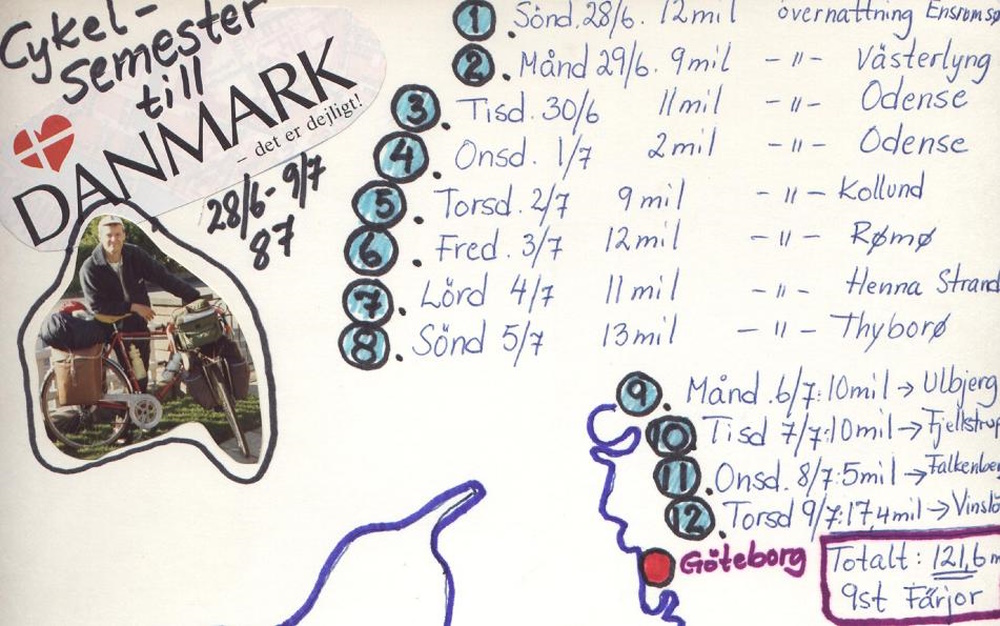 Cykel-
semester
till
DANMARK
– det er dejligt!
28/6-9/7
87
1 Sönd. 28/6. 12mil övernattning
2. Månd 29/6. 9mil -"- Västerlyng
3. Tisd. 30/6 11mil -"- Odense
4. Onsd. 1/7 2mil -"- Odense
5. Torsd. 2/7 9mil -"- Kollund
6. Fred. 3/7 12mil -"- Rømø
7. Lörd 4/7 11mil -"- Henna Strand
8. Sönd 5/7 13mil -"- Thyborø
9. Månd. 6/7:10mil → Ulbjerg
10. Tisd 7/7:10mil →
11. Onsd. 8/7:5mil →
12. Torsd 9/7:17,4mil →
Göteborg
Totalt: 121,6 m
9st Färjor